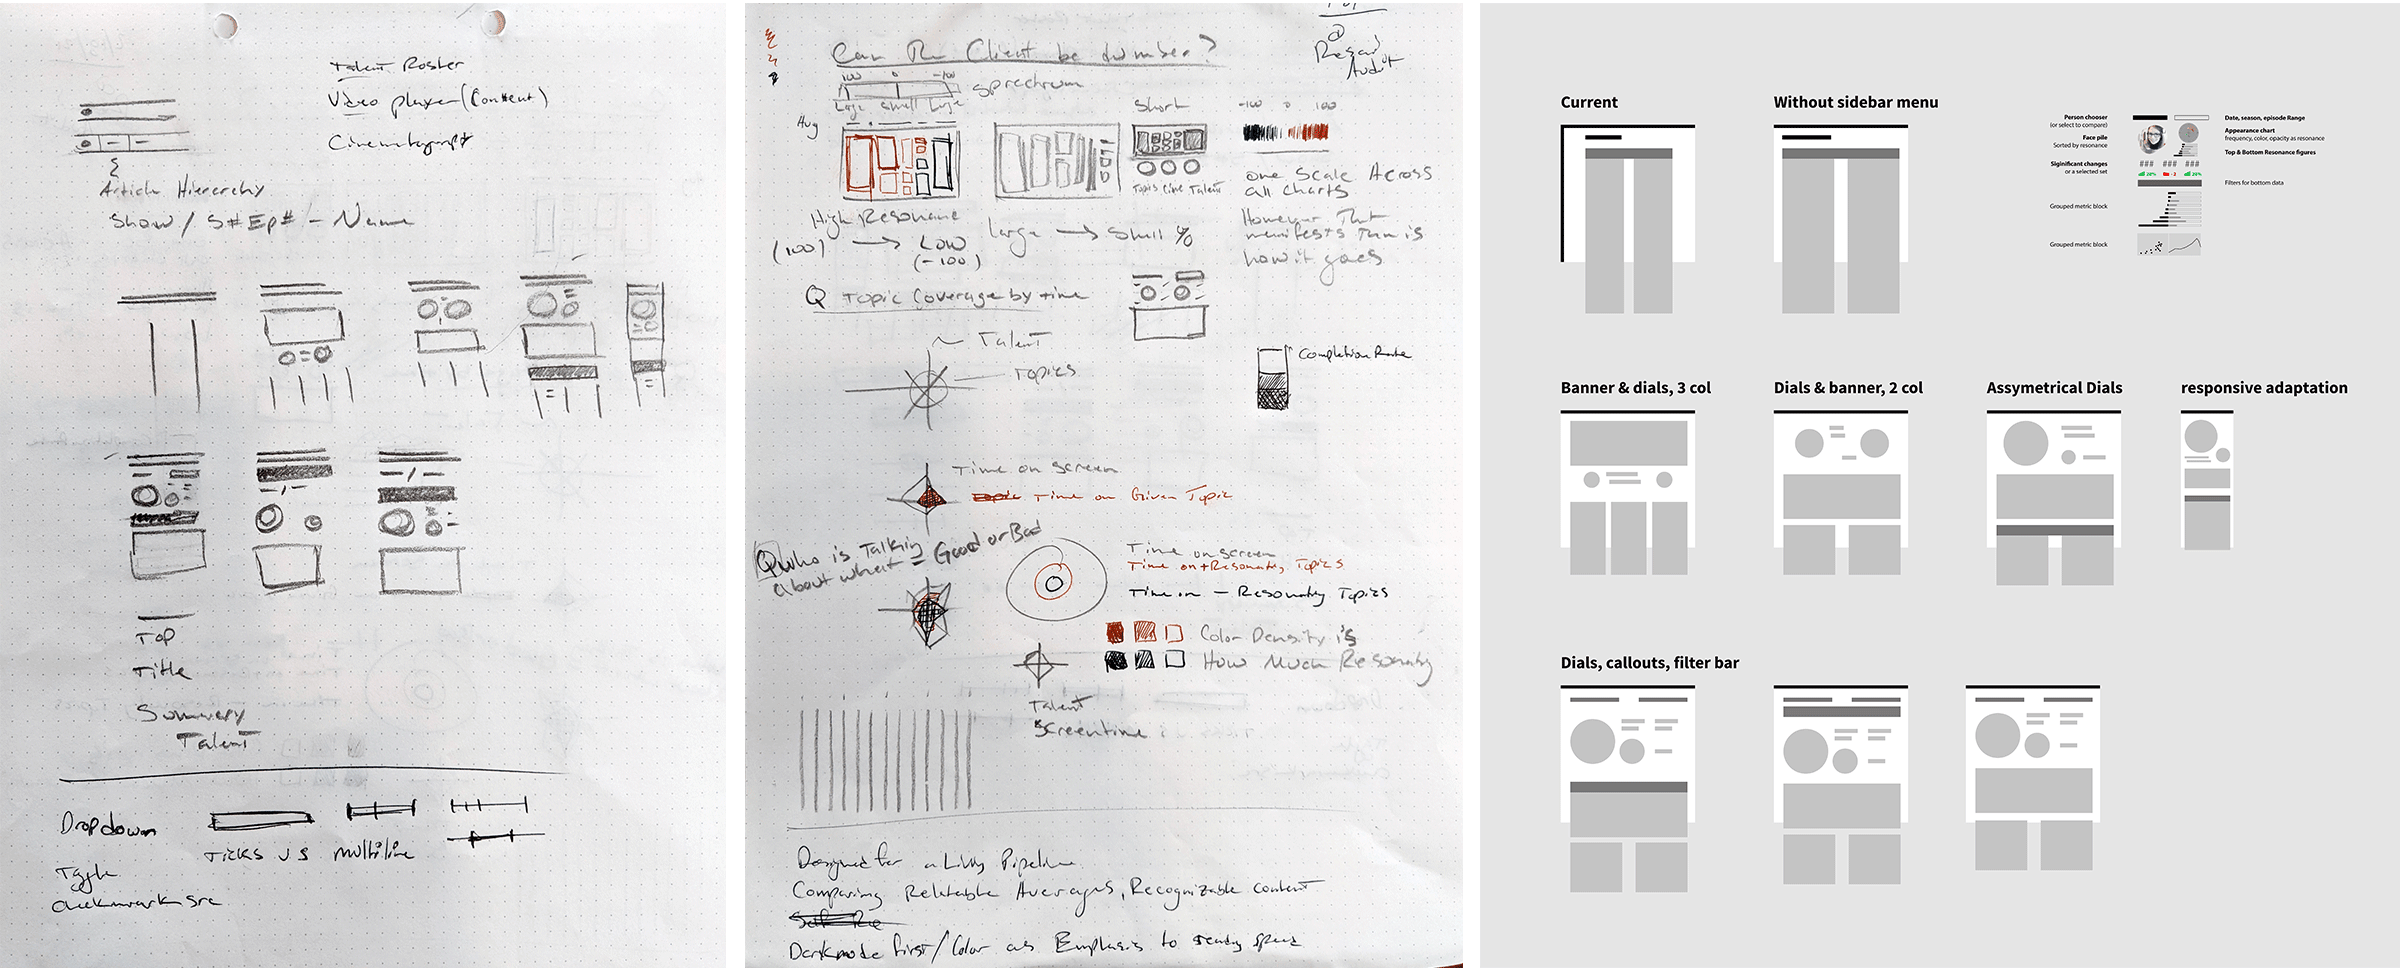 Talent Roster
Video player (Content)
Article Hierarchy
Show / S# Ep# - Name
Top
Title
Summary
Talent
Dropdown
Ticks vs Multiline
Toggle
Checkmark
Can The Client be dumber?
100 0 -100
Spectrum
Large Small Large
Short
-100 0 100
Topics Cine Talent
one Scale Across
all charts
High Resonance
(100) → Low
(-100)
Large → Small %
However That
manifests Then is
how it goes
Q Topic Coverage by time
Talent
Topics
Completion Rate
Time on screen
Time on Given Topic
Q who is Talking
about what = Good or Bad
Time on screen
Time on + Resonating Topics
Time on - Resonating Topics
Color Density is
How Much Resonating
Talent
Screentime
Designed for a Living Pipeline
Comparing Relatable Averages, Recognizable content
Darkmode First / Color as Emphasis to
Current
Without sidebar menu
Person chooser
(or select to compare)
Face pile
Sorted by resonance
Siginificant changes
or a selected set
Grouped metric block
Grouped metric block
Date, season, episode Range
Appearance chart
frequency, color, opacity as resonance
Top & Bottom Resonance figures
### ### ###
20% -2 20%
Filters for bottom data
Banner & dials, 3 col
Dials & banner, 2 col
Assymetrical Dials
responsive adaptation
Dials, callouts, filter bar